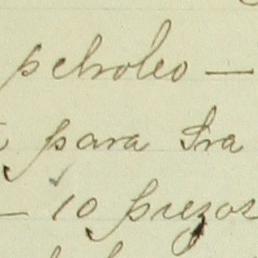 petroleo —
para Ira
— 10 prezos